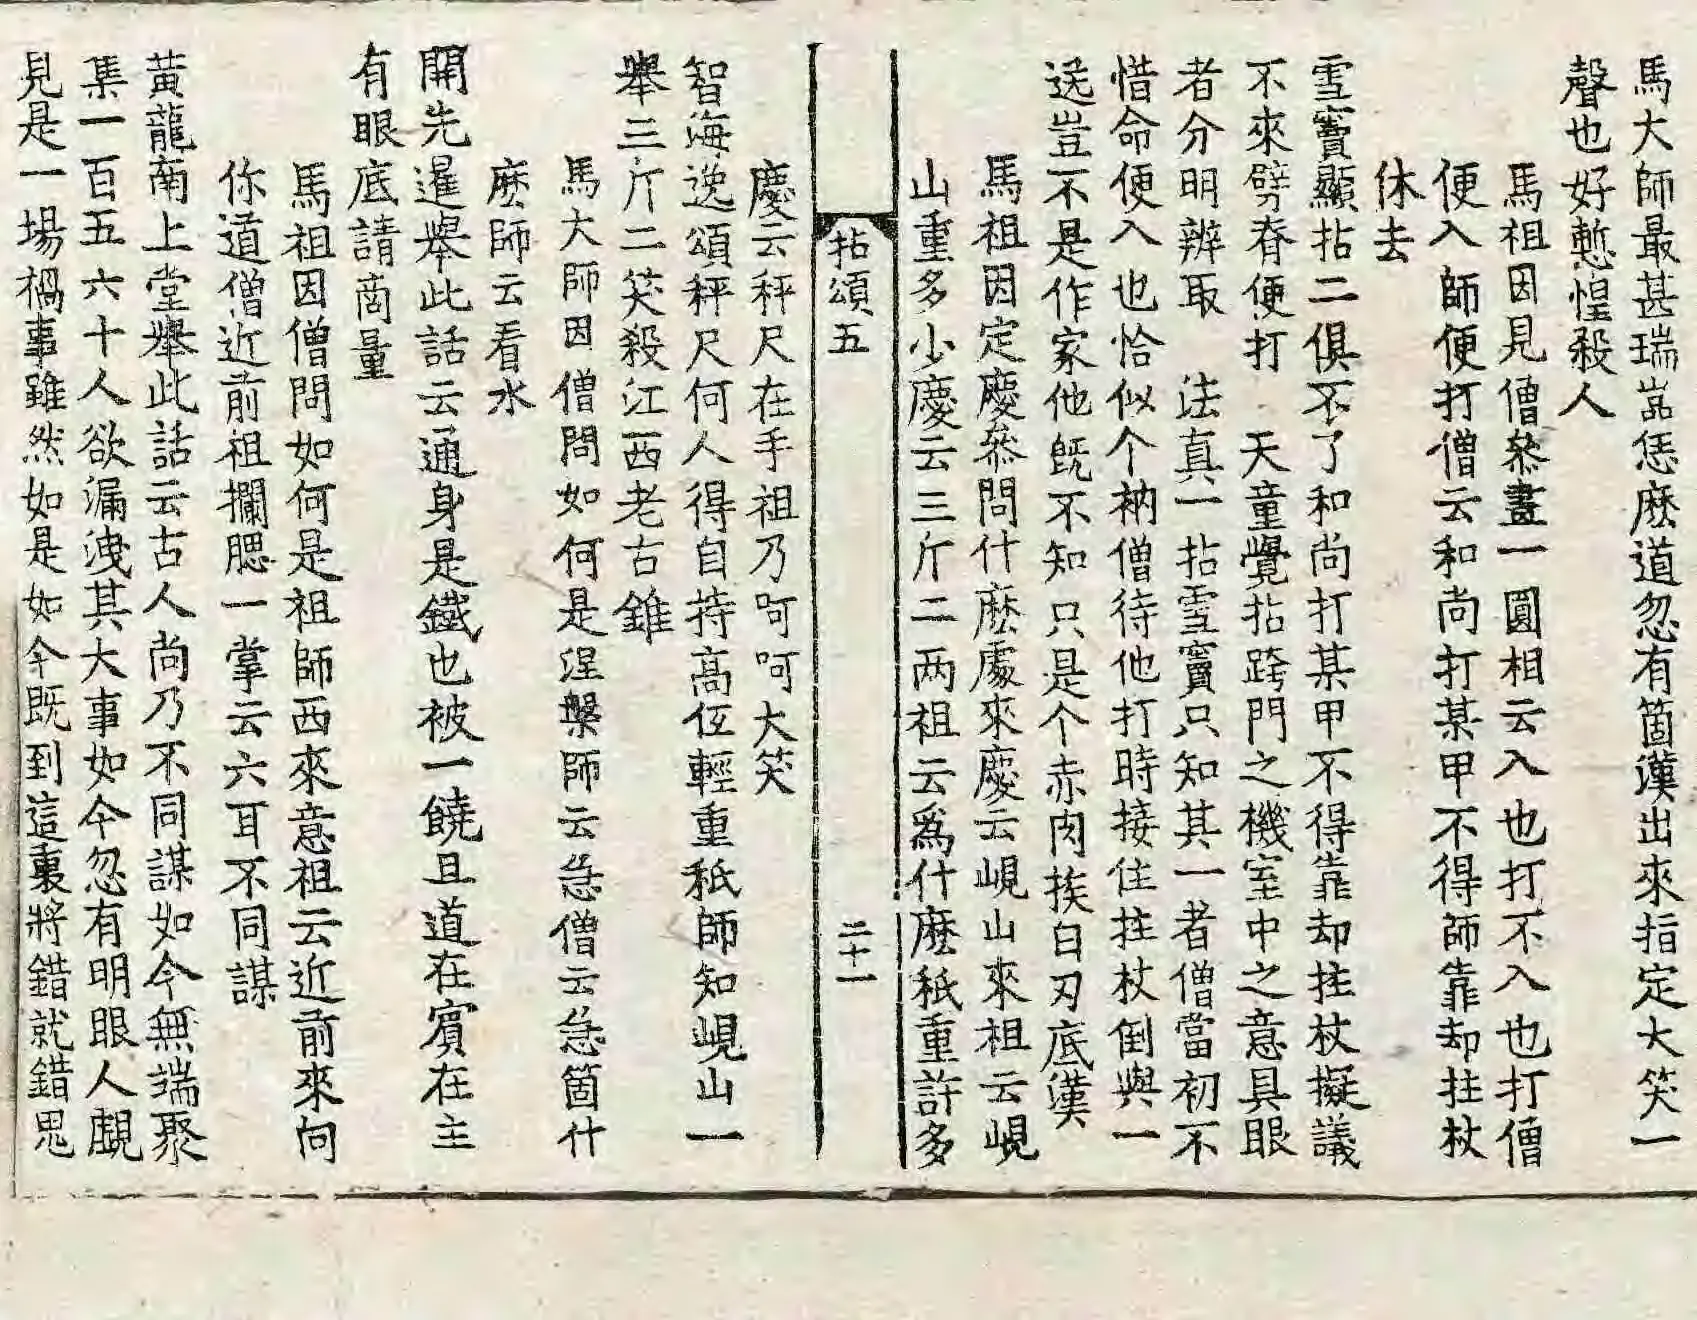 馬大師最甚瑞嵓恁麽道忽有箇漢出來指定大笑一
聲也好慙惶殺人
馬祖因見僧叅畫一圓相云入也打不入也打僧
便入師便打僧云和尚打某甲不得師靠却拄杖
休去
雪竇顯拈二俱不了和尚打某甲不得靠却拄杖擬議
不來劈脊便打　天童覺拈跨門之機室中之意具眼
者分明辨取　法真一拈雪竇只知其一者僧當初不
惜命便入也恰似个衲僧待他打時接住拄杖倒與一
送豈不是作家他旣不知只是个赤肉挨白刃底漢
馬祖因定慶叅問什麽處來慶云峴山來祖云峴
山重多少慶云三斤二两祖云爲什麽秖重許多
拈頌五
二十一
慶云秤尺在手祖乃呵呵大笑
智海逸頌秤尺何人得自持高低輕重秖師知峴山一
擧三斤二笑殺江西老古錐
馬大師因僧問如何是涅槃師云急僧云急箇什
麽師云看水
開先暹擧此話云通身是鐵也被一饒且道在賓在主
有眼底請商量
馬祖因僧問如何是祖師西來意祖云近前來向
你道僧近前祖攔腮一掌云六耳不同謀
黃龍南上堂擧此話云古人尚乃不同謀如今無端聚
集一百五六十人欲漏洩其大事如今忽有明眼人覷
見是一場禍事雖然如是如今既到這裏將錯就錯思